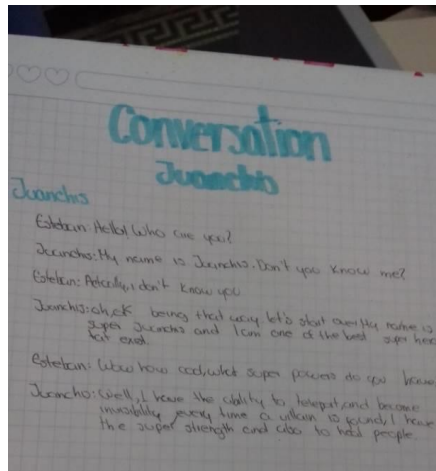 Conversation
Juanchis
Juanchis
Esteban: Hello! Who are you?
Juanchis: My name is Juanchis. Don't you know me?
Esteban: Actually, i don't know you
Juanchis: oh, ok being that way. let's start over. My name is
super Juanchis and I am one of the best super
that exist.
Esteban: Wow how cool, what super powers do you have
Juancho: Well, I have the ability to teleport, and become
invisibility every time a villain is found, I have
the super strength and also to heal people.